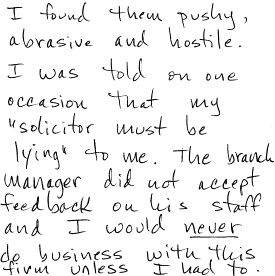 I found them pushy,
abrasive and hostile.
I was told on one
occasion that my
"solicitor must be
lying" to me. The branch
manager did not accept
feedback on his staff
and I would never
do business with this
firm unless I had to.